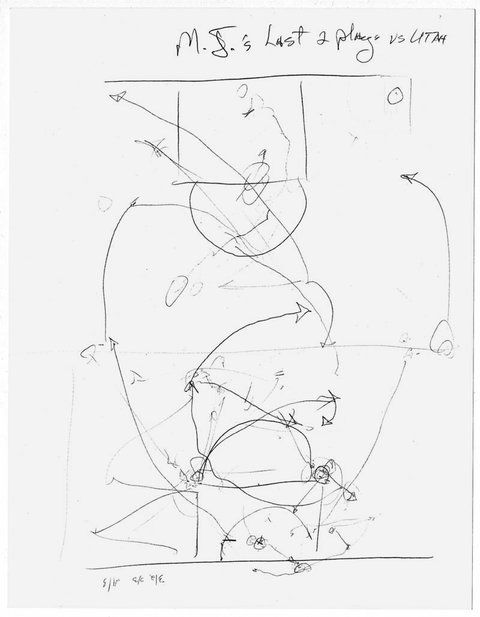 M.J.'s Last 2 plays vs UTAH